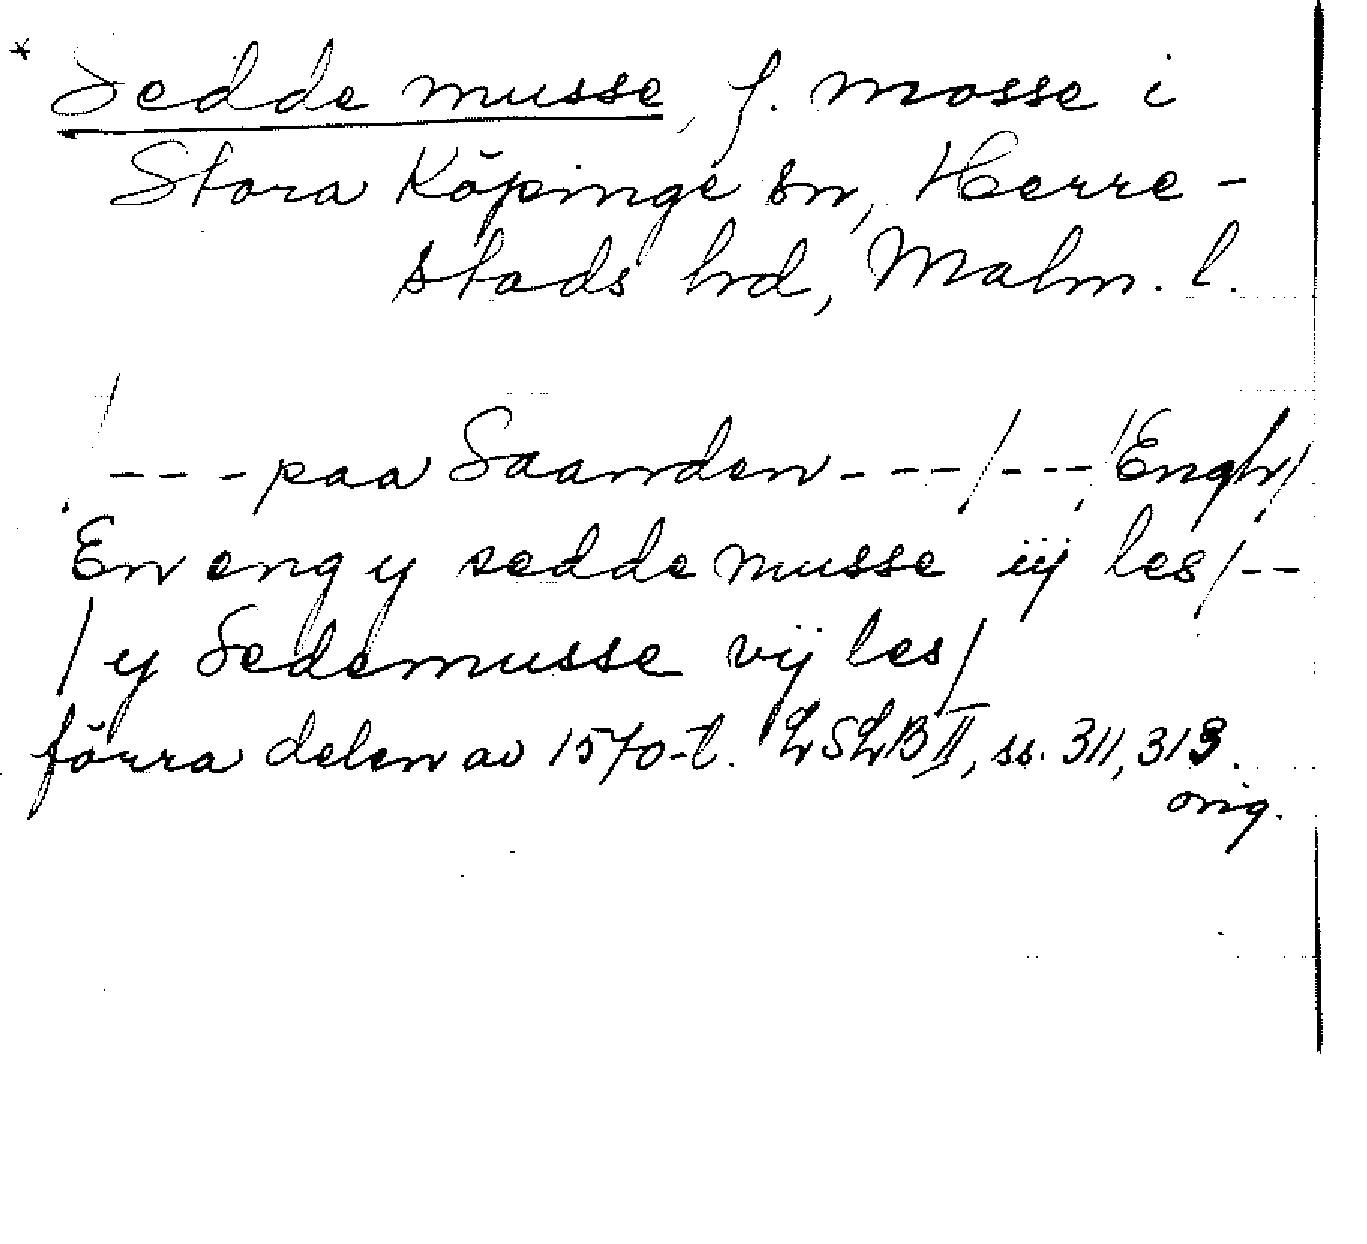 * Sedde musse, f. mosse i
Stora Köpinge sn, Herre-
stads hd, Malm. l.
/--- paa Saanden ---/---/Engh/
En eng y sedde musse iij les/--
/y Sedemusse vij les/
förra delen av 1570-t. LSLB II, ss. 311, 313.
orig.